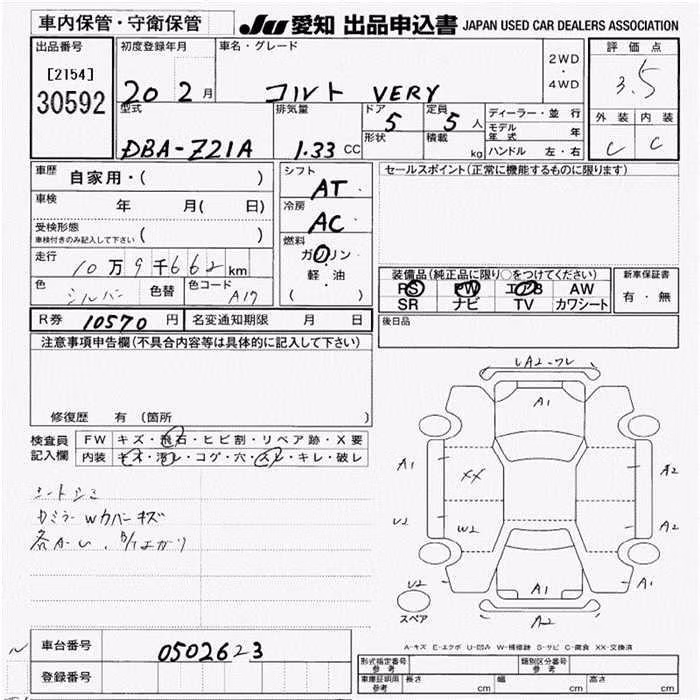 車内保管・守衛保管
JU 愛知 出品申込書 JAPAN USED CAR DEALERS ASSOCIATION
出品番号
[2154]
30592
初度登録年月
20 2 月
車名・グレード
コルト VERY
2WD
・
4WD
評価点
3.5
外装 内装
C C
型式
DBA-Z21A
排気量
1.33 CC
ドア
5
形状
定員
5 人
積載
kg
ディーラー・並行
モデル年式 年
ハンドル 左・右
車歴 自家用・( )
車検 年 月( 日)
受検形態
車検付きのみ記入して下さい ( )
走行 10万9千662km
色 シルバー 色替 色コード A17
シフト
AT
冷房
AC
燃料
ガソリン
軽・油
( )
セールスポイント(正常に機能するものに限ります)
装備品(純正品に限り○をつけてください)
PS PW エアB AW
SR ナビ TV カワシート
新車保証書
有・無
R券 10570 円 名変通知期限 月 日
後日品
注意事項申告欄(不具合内容等は具体的に記入して下さい)
修復歴 有(箇所 )
検査員
記入欄
FW キズ・飛石・ヒビ割・リペア跡・X要
内装 キズ・汚レ・コゲ・穴・スレ・キレ・破レ
シートシミ
カミラーWカバーキズ
各A-U、
LA2-ワレ
A1
A1
XX
A2
U2
W2
A2
U2
A1
A1
A2
スペア
A-キズ E-エクボ U-凹み W-補修跡 S-サビ C-腐食 XX-交換済
車台番号 0502623
登録番号
形式指定番号
参考
類別区分番号
参考
車庫証明用
参考
長さ cm 幅 cm 高さ cm